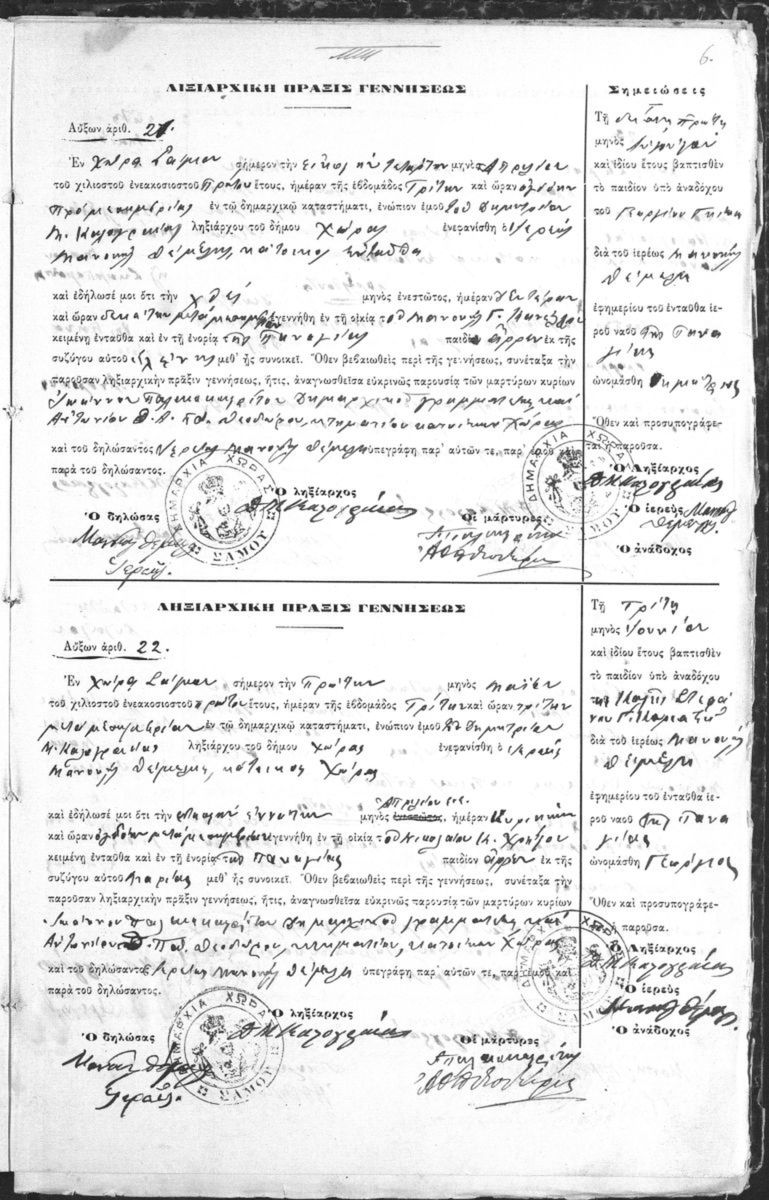 6.
ΛΙΞΙΑΡΧΙΚΗ ΠΡΑΞΙΣ ΓΕΝΝΗΣΕΩΣ
Αὔξων ἀριθ. 21.
Ἐν Χώρᾳ Σάμου σήμερον τὴν εἰκοστὴν τετάρτην μηνὸς Ἀπριλίου
τοῦ χιλιοστοῦ ἐνεακοσιοστοῦ Πρώτου ἔτους, ἡμέραν τῆς ἑβδομάδος Τρίτην καὶ ὥραν ὀγδόην
Πρὸ μεσημβρίας ἐν τῷ δημαρχικῷ καταστήματι, ἐνώπιον ἐμοῦ τοῦ Δημητρίου
Μ. Καλογραιᾶ ληξιάρχου τοῦ δήμου Χώρας ἐνεφανίσθη ὁ Ἱερεὺς
Μανουὴλ Θεμελῆς, κάτοικος ἐνταῦθα
καὶ ἐδήλωσέ μοι ὅτι τὴν χθὲς μηνὸς ἐνεστῶτος, ἡμέραν Δευτέραν
καὶ ὥραν δεκάτην μετὰ μεσημβρίαν ἐγεννήθη ἐν τῇ οἰκίᾳ τοῦ Μανουὴλ Γ.
κειμένῃ ἐνταῦθα καὶ ἐν τῇ ἐνορίᾳ τῆς Παναγίας παιδίον ἄρρεν ἐκ τῆς
συζύγου αὐτοῦ Εἰρήνης μεθ' ἧς συνοικεῖ. Ὅθεν βεβαιωθεὶς περὶ τῆς γεννήσεως, συνέταξα τὴν
παροῦσαν ληξιαρχικὴν πρᾶξιν γεννήσεως, ἥτις, ἀναγνωσθεῖσα εὐκρινῶς παρουσίᾳ τῶν μαρτύρων κυρίων
Ἰωάννου Δημαρχικοῦ γραμματέως καὶ
Ἀντωνίου Θ. Παπᾶ Θεοδώρου, κτηματίου κατοίκων Χώρας
καὶ τοῦ δηλώσαντος Ἱερέως Μανουὴλ Θεμελῆ ὑπεγράφη παρ' αὐτῶν τε, παρ' ἐμοῦ καὶ
παρὰ τοῦ δηλώσαντος.
Ὁ ληξίαρχος
Δ Μ Καλογραιᾶς
Ὁ δηλώσας
Μανουὴλ Θεμελῆς
Ἱερεύς.
Οἱ μάρτυρες
ΔΗΜΑΡΧΙΑ ΧΩΡΑΣ ΣΑΜΟΥ
Σημειώσεις
Τῇ δεκάτῃ πρώτῃ
μηνὸς
καὶ ἰδίου ἔτους βαπτισθὲν
τὸ παιδίον ὑπὸ ἀναδόχου
τοῦ Γεωργίου
διὰ τοῦ ἱερέως Μανουὴλ
Θεμελῆ
ἐφημερίου τοῦ ἐνταῦθα ἱε-
ροῦ ναοῦ τῆς Πανα
γίας
ὠνομάσθη Δημήτριος
Ὅθεν καὶ προσυπογράφε-
ται ἡ παροῦσα.
Ὁ Ληξίαρχος
Δ Μ Καλογραιᾶς
Ὁ ἱερεὺς Μανουὴλ
Θεμελῆς
Ὁ ἀνάδοχος
ΛΗΞΙΑΡΧΙΚΗ ΠΡΑΞΙΣ ΓΕΝΝΗΣΕΩΣ
Αὔξων ἀριθ. 22.
Ἐν Χώρᾳ Σάμου σήμερον τὴν Πρώτην μηνὸς Μαΐου
τοῦ χιλιοστοῦ ἐνεακοσιοστοῦ πρώτου ἔτους, ἡμέραν τῆς ἑβδομάδος Τρίτην καὶ ὥραν τρίτην
μετὰ μεσημβρίαν ἐν τῷ δημαρχικῷ καταστήματι, ἐνώπιον ἐμοῦ τοῦ Δημητρίου
Μ. Καλογραιᾶ ληξιάρχου τοῦ δήμου Χώρας ἐνεφανίσθη ὁ ἱερεὺς
Μανουὴλ Θεμελῆς, κάτοικος Χώρας
Ἀπριλίου ἐ.ἔ.
καὶ ἐδήλωσέ μοι ὅτι τὴν εἰκοστὴν ἐννάτην μηνὸς ἐνεστῶτος, ἡμέραν Κυριακὴν
καὶ ὥραν ὀγδόην μετὰ μεσημβρίαν ἐγεννήθη ἐν τῇ οἰκίᾳ τοῦ Νικολάου Κ. Χρήστου
κειμένῃ ἐνταῦθα καὶ ἐν τῇ ἐνορίᾳ τῆς Παναγίας παιδίον ἄρρεν ἐκ τῆς
συζύγου αὐτοῦ Μαρίας μεθ' ἧς συνοικεῖ. Ὅθεν βεβαιωθεὶς περὶ τῆς γεννήσεως, συνέταξα τὴν
παροῦσαν ληξιαρχικὴν πρᾶξιν γεννήσεως, ἥτις, ἀναγνωσθεῖσα εὐκρινῶς παρουσίᾳ τῶν μαρτύρων κυρίων
Ἰωάννου Δημαρχικοῦ γραμματέως καὶ
Ἀντωνίου Θ. Παπᾶ Θεοδώρου, κτηματίου, κατοίκων Χώρας
καὶ τοῦ δηλώσαντος Ἱερέως Μανουὴλ Θεμελῆ ὑπεγράφη παρ' αὐτῶν τε, παρ' ἐμοῦ καὶ
παρὰ τοῦ δηλώσαντος.
Ὁ ληξίαρχος
Δ Μ Καλογραιᾶς
Ὁ δηλώσας
Μανουὴλ Θεμελῆς
Ἱερεύς.
Οἱ μάρτυρες
ΔΗΜΑΡΧΙΑ ΧΩΡΑΣ ΣΑΜΟΥ
Τῇ Τρίτῃ
μηνὸς Ἰουνίου
καὶ ἰδίου ἔτους βαπτισθὲν
τὸ παιδίον ὑπὸ ἀναδόχου
διὰ τοῦ ἱερέως Μανουὴλ
Θεμελῆ
ἐφημερίου τοῦ ἐνταῦθα ἱε-
ροῦ ναοῦ τῆς Πανα
γίας
ὠνομάσθη Γεώργιος
Ὅθεν καὶ προσυπογράφε-
ται ἡ παροῦσα.
Ὁ Ληξίαρχος
Δ Μ Καλογραιᾶς
Ὁ ἱερεὺς
Μανουὴλ Θεμελῆς
Ὁ ἀνάδοχος